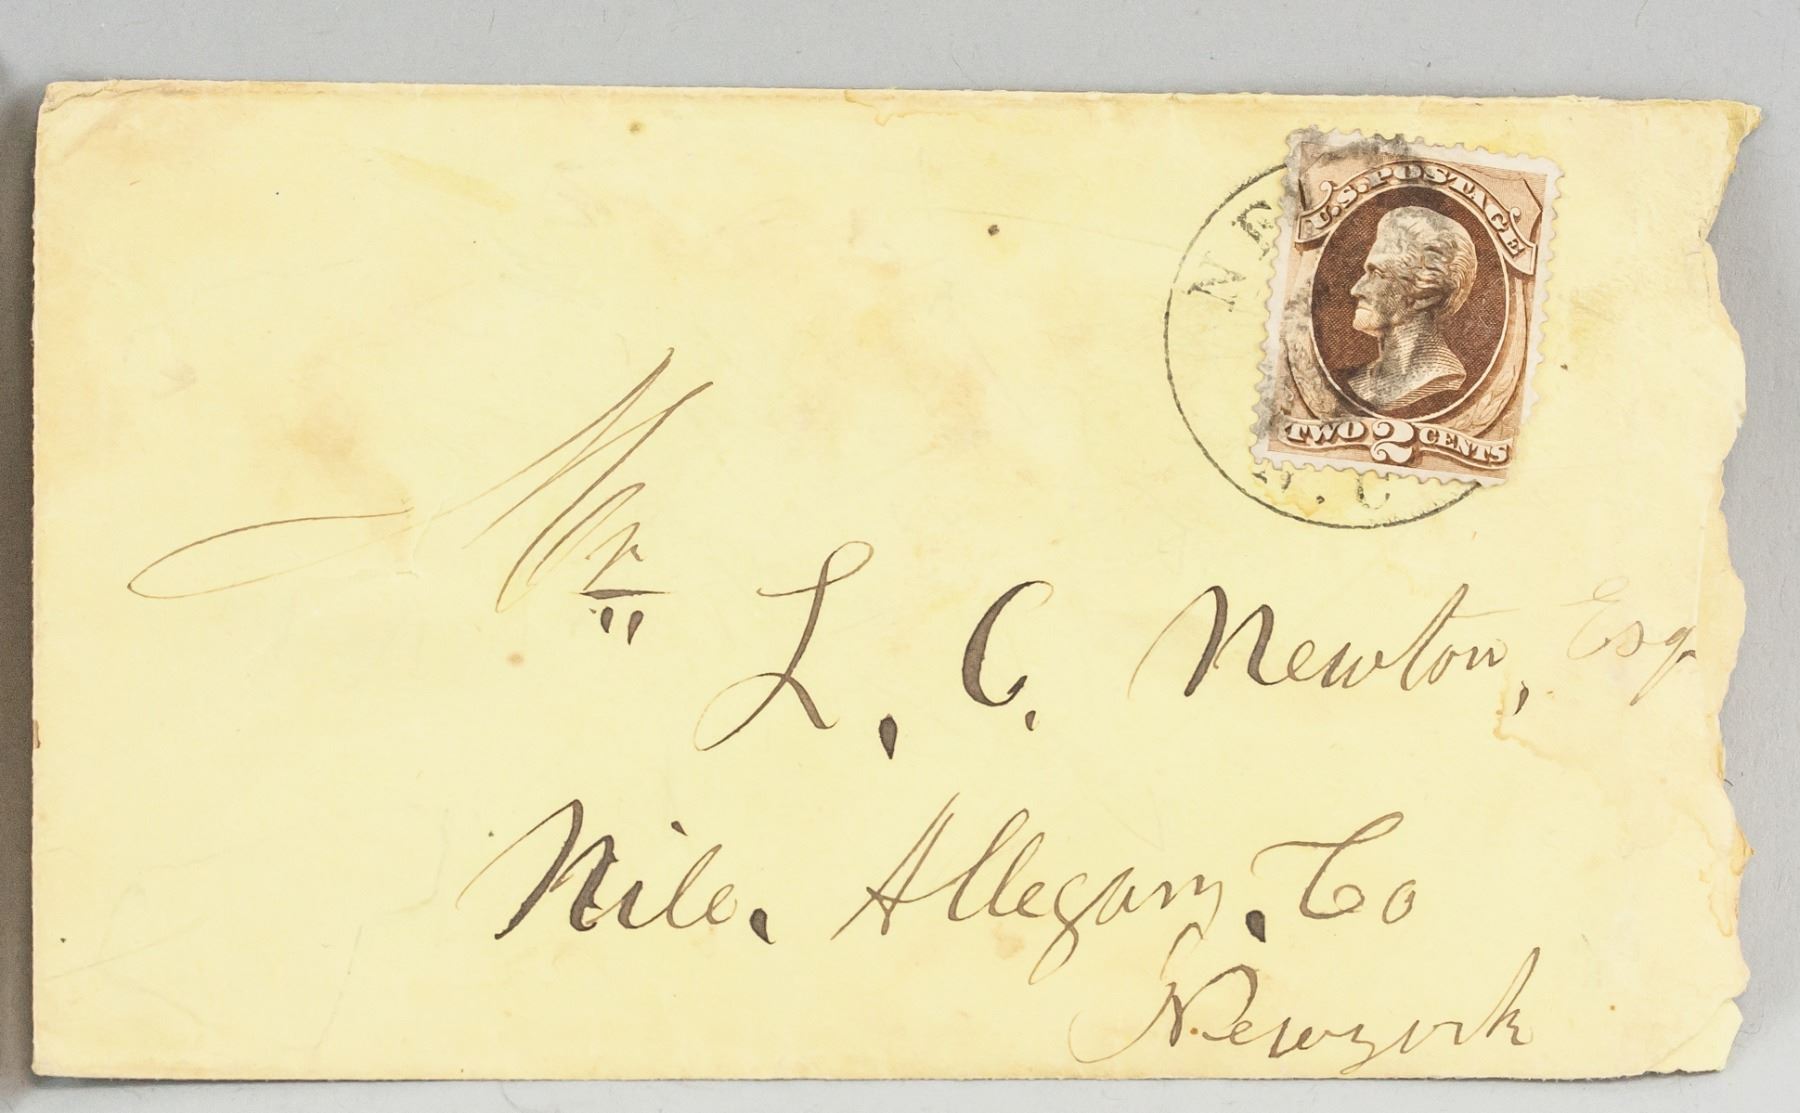 U.S. POSTAGE
TWO 2 CENTS
Mr
L. C. Newton, Esq
Nile. Allegany. Co
Newyork